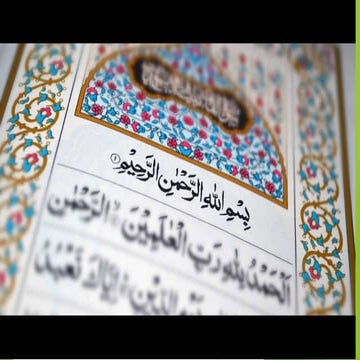 بِسْمِ اللهِ الرَّحْمٰنِ الرَّحِيْمِ ۝١
اَلْحَمْدُ لِلّٰهِ رَبِّ الْعٰلَمِيْنَ ۝ الرَّحْمٰنِ
الدِّيْنِ ۝ اِيَّاكَ نَعْبُدُ